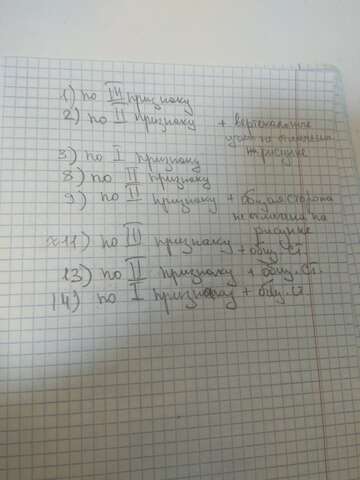 1) по III признаку
2) по II признаку + вертикальные
углы не отмечены
на рисунке
3) по I признаку
8) по II признаку
9) по II признаку + общая сторона
не отмечена на
рисунке
11) по III признаку + общ. ст.
13) по II признаку + общ. ст.
14) по I признаку + общ. ст.